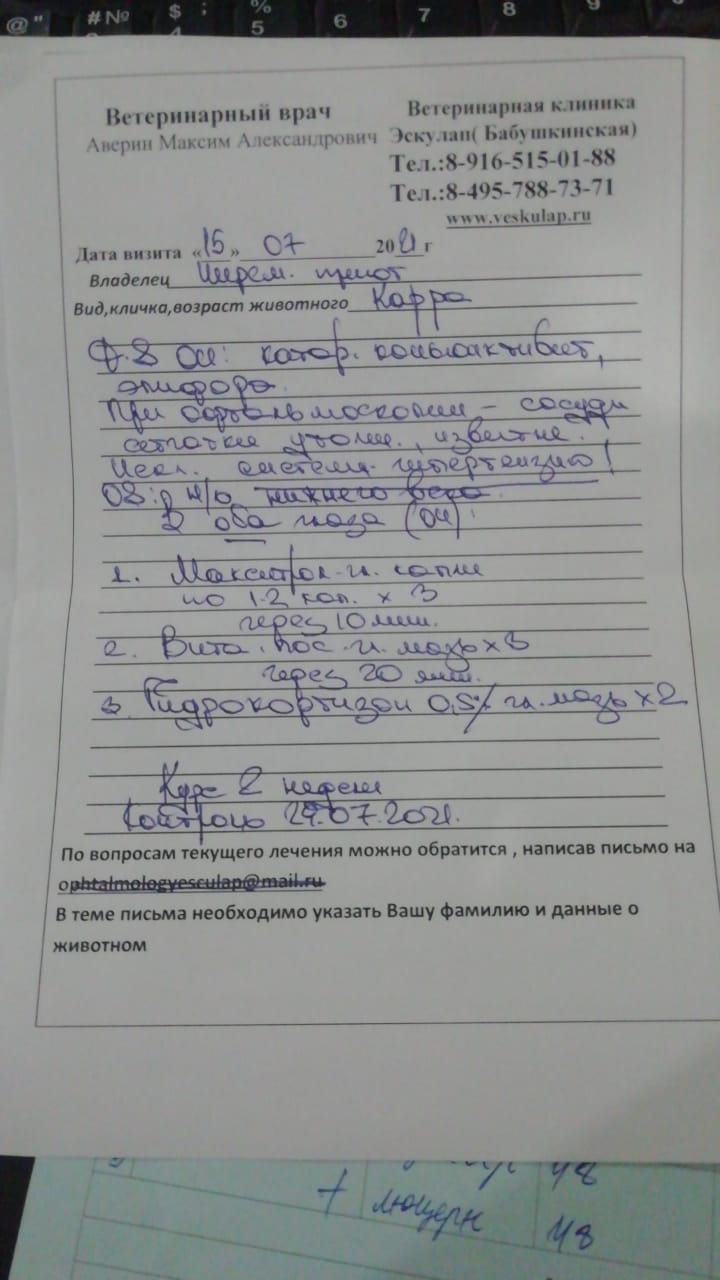 @ " #№ $ ; 4 % 5 6 7 8 9
Ветеринарный врач
Аверин Максим Александрович
Ветеринарная клиника
Эскулап( Бабушкинская)
Тел.:8-916-515-01-88
Тел.:8-495-788-73-71
www.veskulap.ru
Дата визита «15» 07 2021 г
Владелец Шерем. приют
Вид,кличка,возраст животного Карра
OU: катар. конъюнктивит,
эпифора.
При офтальмоскопии - сосуды
сетчатки утолщ., извитые.
Искл. системн. гипертензию!
OS: н/о нижнего века.
В оба глаза (OU):
1. Макситрол гл. капли
по 1-2 кап. х 3
через 10 мин.
2. Вита-пос гл. мазь х 3
через 20 мин.
3. Гидрокортизон 0,5% гл. мазь х 2
Курс 2 недели
Контроль 29.07.2021.
По вопросам текущего лечения можно обратится , написав письмо на
ophtalmologyesculap@mail.ru
В теме письма необходимо указать Вашу фамилию и данные о
животном
48
+ люцерн 48